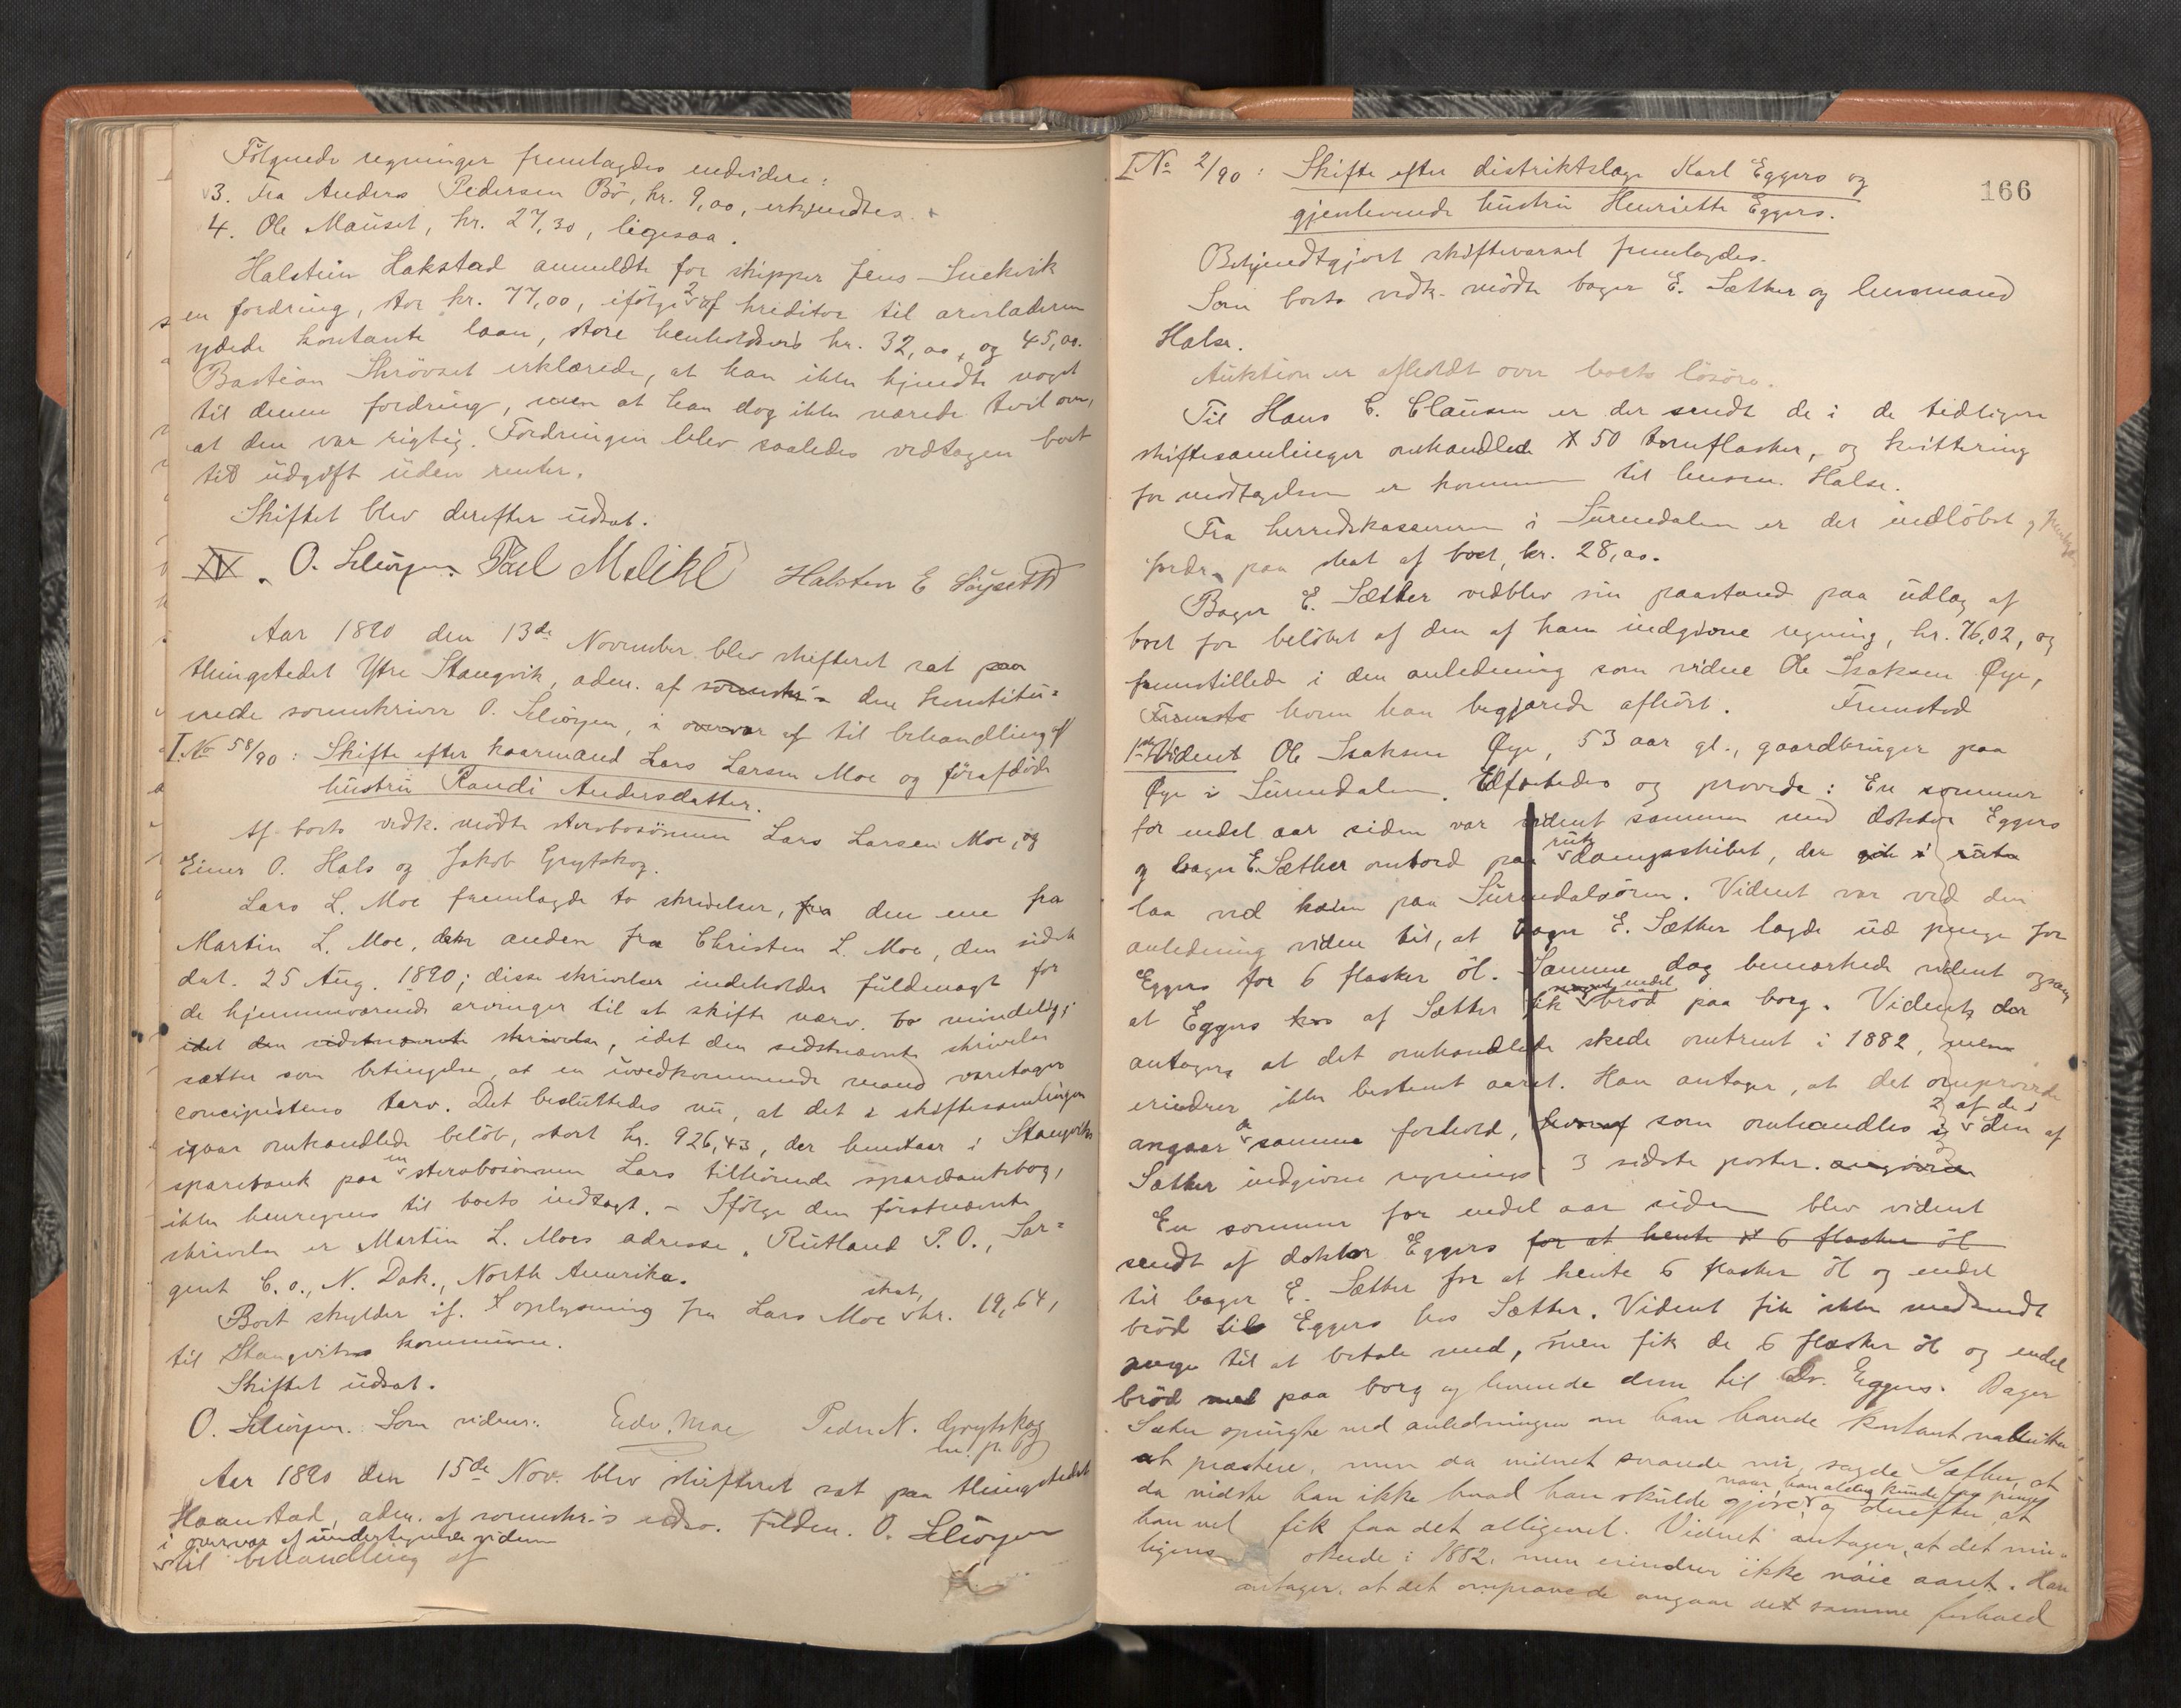 Følgende regninger fremlagdes endvidere:
3. Fra Anders Pedersen Bö, kr. 9,00, erkjendtes.
4. Ole Mauset, kr. 27,30, ligesaa.
Halstein Hakstad anmeldte for skipper Jens
en fordring, stor kr. 77,00, ifölge 2 af kreditor til arveladeren
ydede kontante laan, store henholdsvis kr. 32,00, og 45,00.
Bastian Skrövset erklærede, at han ikke kjendte noget
til denne fordring, men at han dog ikke nærede tvil om,
at den var rigtig. Fordringen blev saaledes vedtagen boet
til udgift uden renter.
Skiftet blev derefter udsat.
O. Halsten E
Aar 1890 den 13de November blev skifteret sat paa
thingstedet Ytre Stangvik, adm. af sorenskr's den konstitu=
erede sorenskriver O. i overvær af til behandling af
I. No 58/90: Skifte efter kaarmand Lars Larsen Moe og førafdöde
hustru Randi Andersdatter.
Af boets vedk. mödte sterbosönnen Lars Larsen Moe, og
Einer O. Hals og Jakob Grytskog.
Lars L. Moe fremlagde to skrivelser, fra den ene fra
Martin L. Moe, den anden fra Christen L. Moe, den sidste
dat. 25 Aug. 1890; disse skrivelser indeholder fuldmagt for
de hjemmeværende arvinger til at skifte værv. bo mindelig;
idet den sidstnævnte skrivelse, idet den sidstnævnte skrivelse
sætter som betingelse, at en uvedkommende mand varetager
concipistens tarv. Det besluttedes nu, at det i skiftesamlingen
igaar omhandlede belöb, stort kr. 926,43, der henstaar i Stangviks
sparebank paa en sterbosönnen Lars tilhörende sparebankbog,
ikke henregnes til boets indtægt. - Ifölge den förstnævnte
skrivelse er Martin L. Moes adresse, Rutland P. O., Sar=
gent C.o., N. Dak., North Amerika.
Boet skylder if. oplysning fra Lars Moe skat, kr. 19,64,
til Stangviks kommune.
Skiftet udsat.
O. Som vidner: Edv. Moe Peder N. Grytskog
m. p. P.
Aar 1890 den 15de Nov. blev skifteret sat paa thingstedet
Haanstad, adm. af sorenskr.s edsv. fuldm. O.
i overvær af undertegnede vidner
til behandling af
166
I No 2/90: Skifte efter distriktslæge Karl Eggers og
gjenlevende hustru Henriette Eggers.
Bekjendtgjort skiftevarsel fremlagdes.
Som boets vedk. mödte bager E. Sæther og lensmand
Halse.
Auktion er afholdt over boets lösöre.
Til Hans C. Clausen er der sendt de i de tidligere
skiftesamlinger omhandlede 50 tomflasker, og kvittering
for modtagelsen er kommen til lensm. Halse.
Fra herredskassereren i Surendalen er der indlöbet
fordr. paa skat af boet, kr. 28,00.
Bager E. Sæther vedblev sin paastand paa udlæg af
boet for belöbet af den af ham indgivne regning, kr. 76,02, og
fremstillede i den anledning som vidne Ole Isaksen Øye,
Fremsto hvem han begjærede afhört. Fremstod
1ste Vidne: Ole Isaksen Øye, 53 aar gl., gaardbruger paa
Øye i Surendalen. Edfæstedes og provede: En sommer
for endel aar siden var vidnet sammen med doktor Eggers
og bager E. Sæther ombord paa rute dampskibet, der gik i rute
laa ved kaien paa Surendalsören. Vidnet var ved den
anledning vidne til, at bager E. Sæther lagde ud penge for
Eggers for 6 flasker öl. Samme dag bemærkede vidnet ogsaa,
at Eggers hos af Sæther fik noget endel bröd paa borg. Vidnet, der
antager, at det omhandlede skede omtrent i 1882, men
erindrer ikke bestemt aaret. Han antager, at det omprovede
angaar de samme forhold, hvoraf som omhandles i 2 af de i den af
Sæther indgivne regnings 3 sidste poster. angivne
En sommer for endel aar siden blev vidnet
sendt af doktor Eggers for at hente 6 flasker öl
til bager E. Sæther for at hente 6 flasker öl og endel
bröd til Eggers hos Sæther. Vidnet fik ikke medsendt
penge til at betale med, men fik de 6 flasker öl og endel
bröd med paa borg og leverede dem til Dr. Eggers. Bager
Sæther spurgte ved anledningen om han havde kontant
at præstere, men da vidnet svarede nei, sagde Sæther, at
da vidste han ikke hvad han skulde gjöre, naar han aldrig kunde faa penge og derefter, at
han vel fik faa det alligevel. Vidnet antager, at det
skede i 1882, men erindrer ikke nöie aaret. Han
antager, at det omprovede angaar det samme forhold